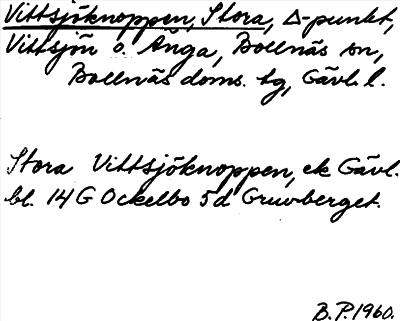 Vittsjöknoppen, Stora, Δ-punkt,
Vittsjön o. Änga, Bollnäs sn,
Bollnäs doms. tg, Gävl. l.
Stora Vittsjöknoppen, ek Gävl.
bl. 14 G Ockelbo 5d Gruvberget.
B.P. 1960.